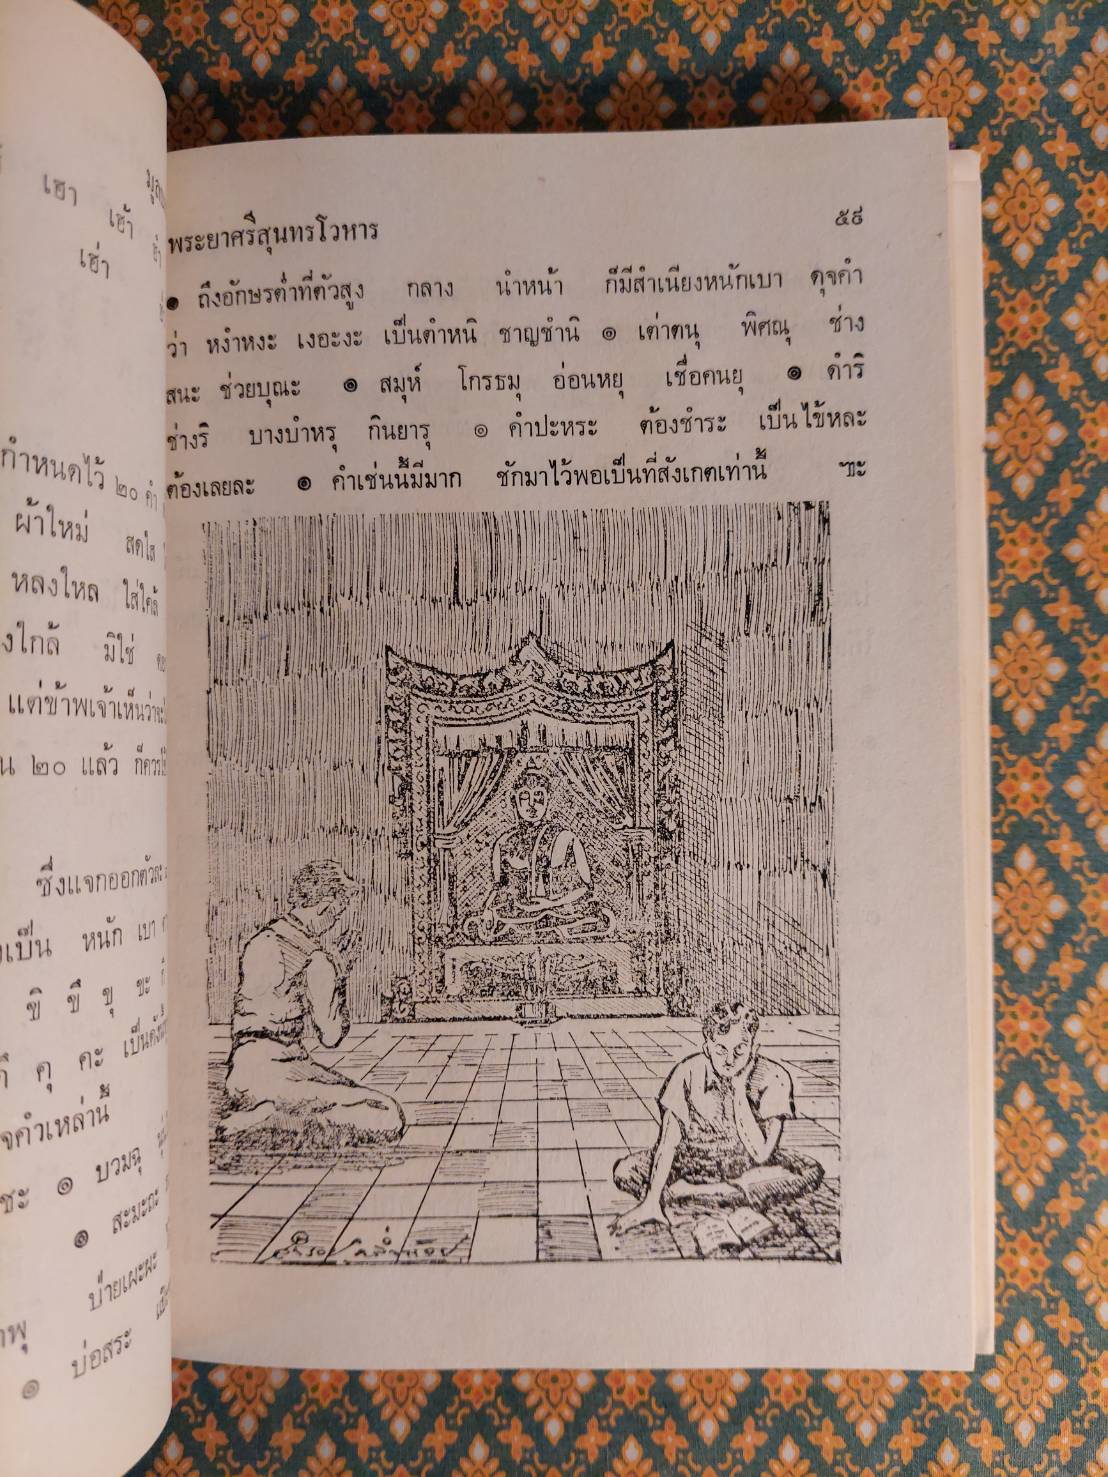 เฮา
เฮ้า
เฮ่า
กำหนดไว้ ๒๐ คำ
ผ้าใหม่ สดใส
หลงใหล ใส่ใคล้
งใกล้ มิใช่
แต่ข้าพเจ้าเห็นว่าจะ
น ๒๐ แล้ว ก็ควร
ซึ่งแจกออกตัวละ
เป็น หนัก เบา
ขิ ขึ ขุ ขะ
คุ คะ เป็นดัง
จคำเหล่านี้
ชะ ๏ บวมฉุ
๏ สะมะถะ
ป่ายเผะผะ
พุ
๏ บ่อสระ
พระยาศรีสุนทรโวหาร ๕๙
๏ ถึงอักษรต่ำที่ตัวสูง กลาง นำหน้า ก็มีสำเนียงหนักเบา ดุจคำ
ว่า หงำหงะ เงอะงะ เป็นตำหนิ ชาญชำนิ ๏ เต่าตนุ พิศณุ ช่าง
สนะ ช่วยบุณะ ๏ สมุห์ โกรธมุ อ่อนหยุ เชื่อคนยุ ๏ ดำริ
ช่างริ บางบำหรุ กินยารุ ๏ คำปะหระ ต้องชำระ เป็นไข้หละ
ต้องเลยละ ๏ คำเช่นนี้มีมาก ชักมาไว้พอเป็นที่สังเกตเท่านี้ ๚ะ